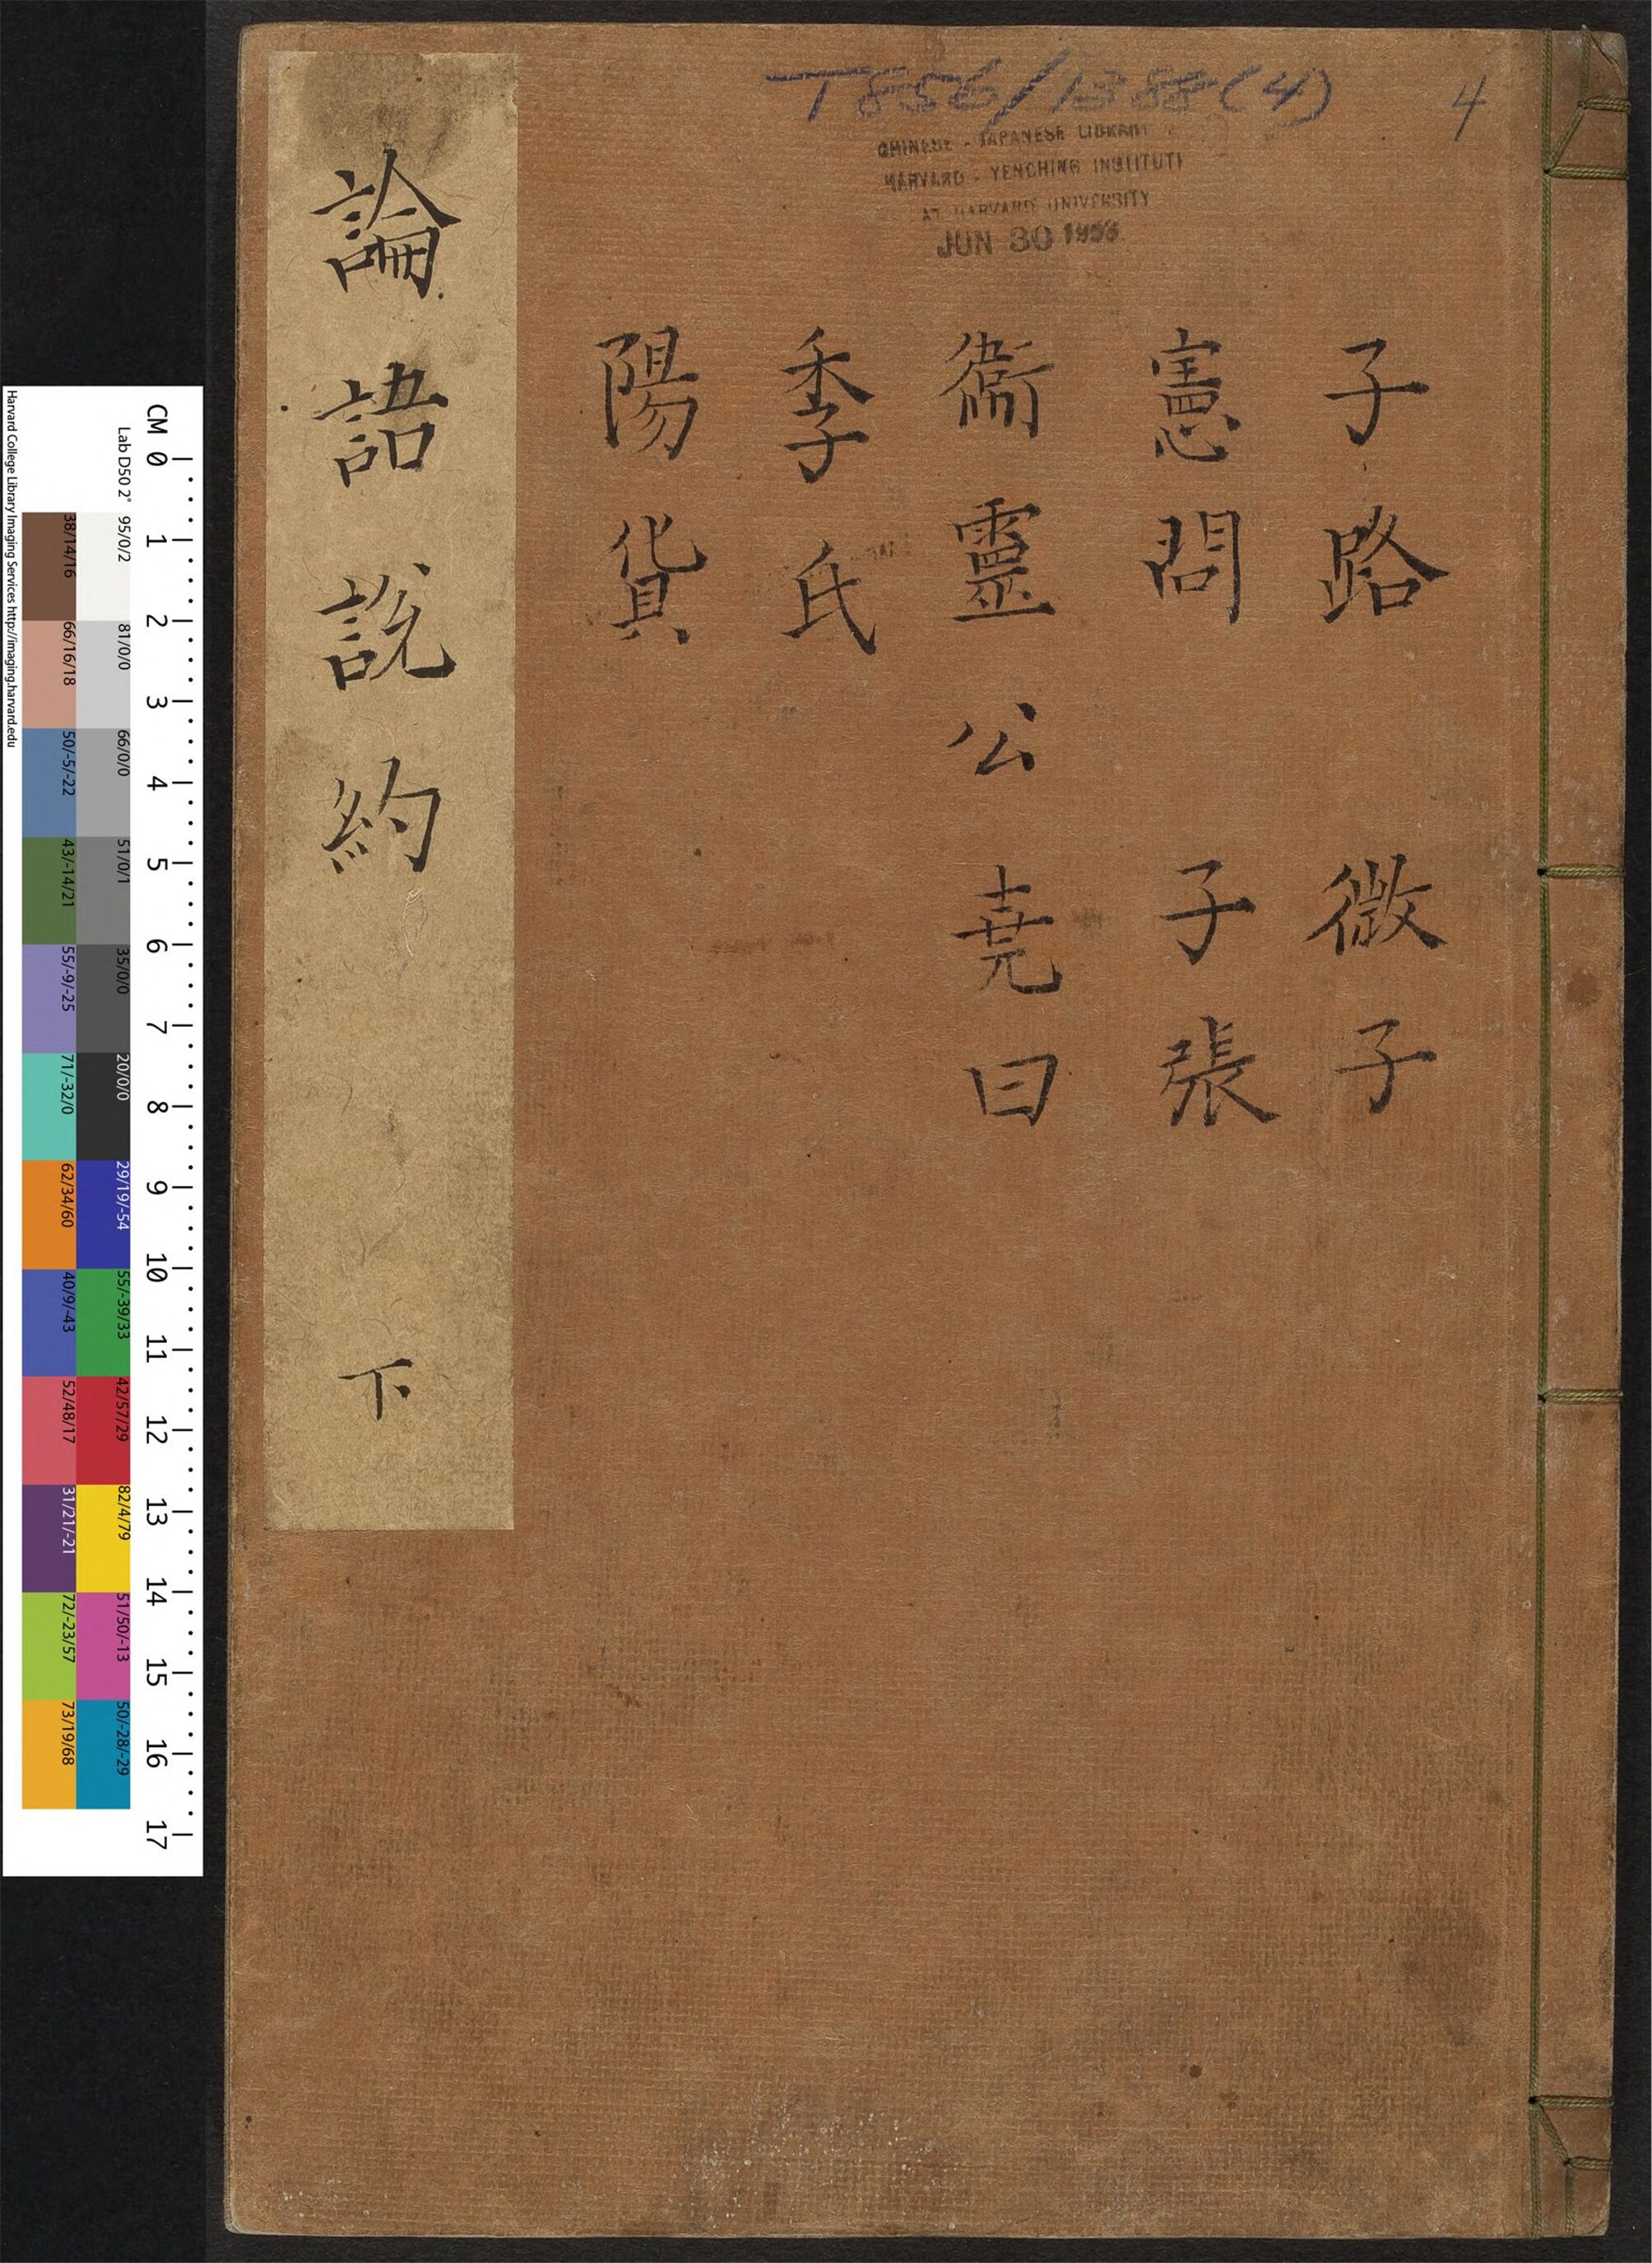 T856/1388(4)
4
CHINESE - JAPANESE LIBRARY
HARVARD - YENCHING INSTITUTE
AT HARVARD UNIVERSITY
JUN 30 1956
子路
憲問
衞靈公
季氏
陽貨
微子
子張
堯曰
論語說約 下
CM 0 1 2 3 4 5 6 7 8 9 10 11 12 13 14 15 16 17
Lab D50 2°
95/0/2
81/0/0
66/0/0
51/0/1
35/0/0
20/0/0
29/19/-54
55/-39/33
42/57/29
82/4/79
51/50/-13
50/-28/-29
38/14/16
66/16/18
50/-5/-22
43/-14/21
55/-9/-25
71/-32/0
62/34/60
40/9/-43
52/48/17
31/21/-21
72/-23/57
73/19/68
Harvard College Library Imaging Services http://imaging.harvard.edu